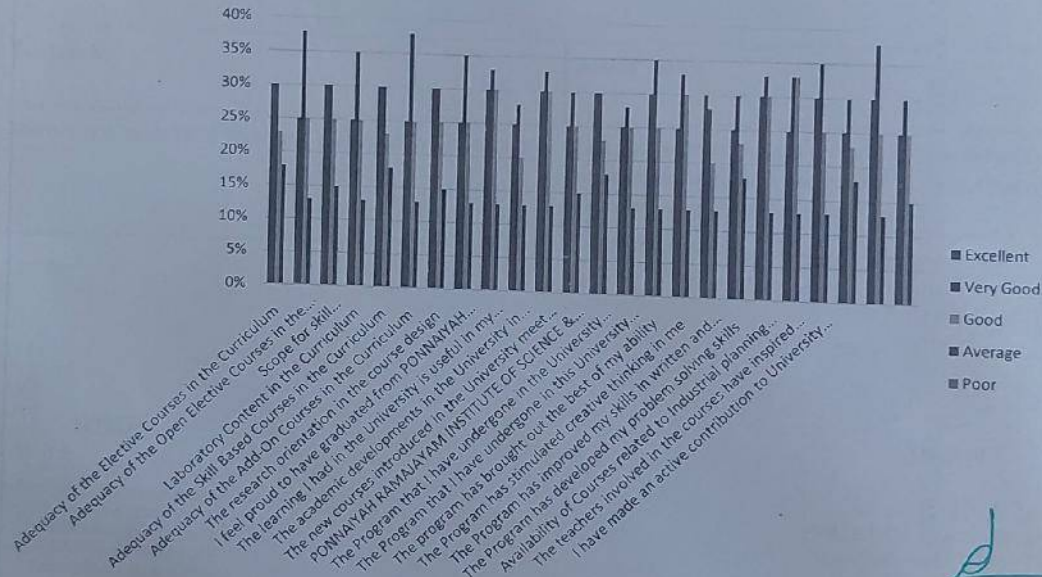 40%
35%
30%
25%
20%
15%
10%
5%
0%
Adequacy of the Elective Courses in the Curriculum
Adequacy of the Open Elective Courses in the...
Scope for skill...
Laboratory Content in the Curriculum
Adequacy of the Skill Based Courses in the Curriculum
Adequacy of the Add-On Courses in the Curriculum
The research orientation in the course design
I feel proud to have graduated from PONNAIYAH...
The learning I had in the University is useful in my...
The academic developments in the University in...
The new courses introduced in the University meet...
PONNAIYAH RAMAJAYAM INSTITUTE OF SCIENCE &...
The Program that I have undergone in the University...
The Program that I have undergone in this University...
The program has brought out the best of my ability
The Program has stimulated creative thinking in me
The Program has improved my skills in written and...
The Program has developed my problem solving skills
Availability of Courses related to Industrial planning...
The teachers involved in the courses have inspired...
I have made an active contribution to University...
Excellent
Very Good
Good
Average
Poor